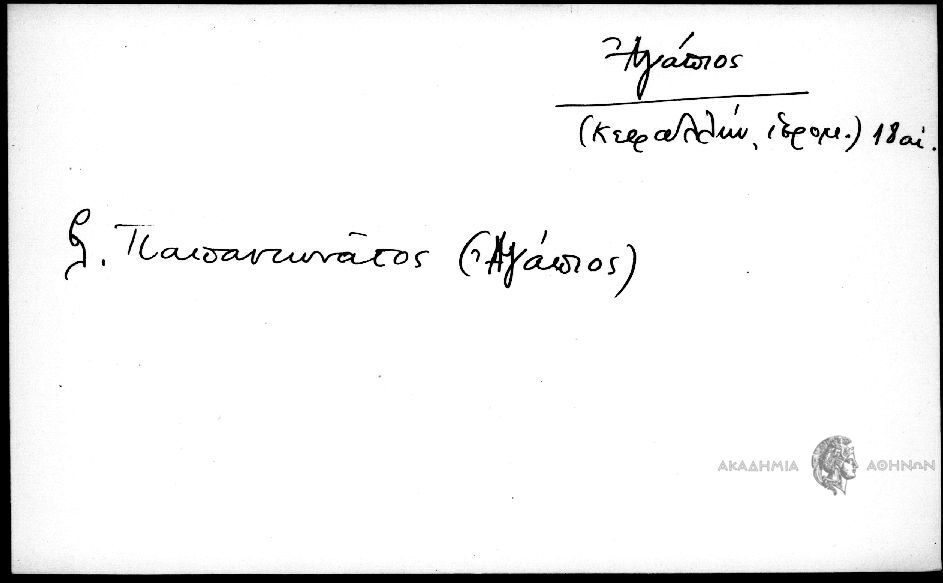 Ἀγάπιος
(Κεφαλλήν, ἱερομ.) 18 αἰ.
Παπαντωνᾶτος (Ἀγάπιος)
ΑΚΑΔΗΜΙΑ ΑΘΗΝΩΝ